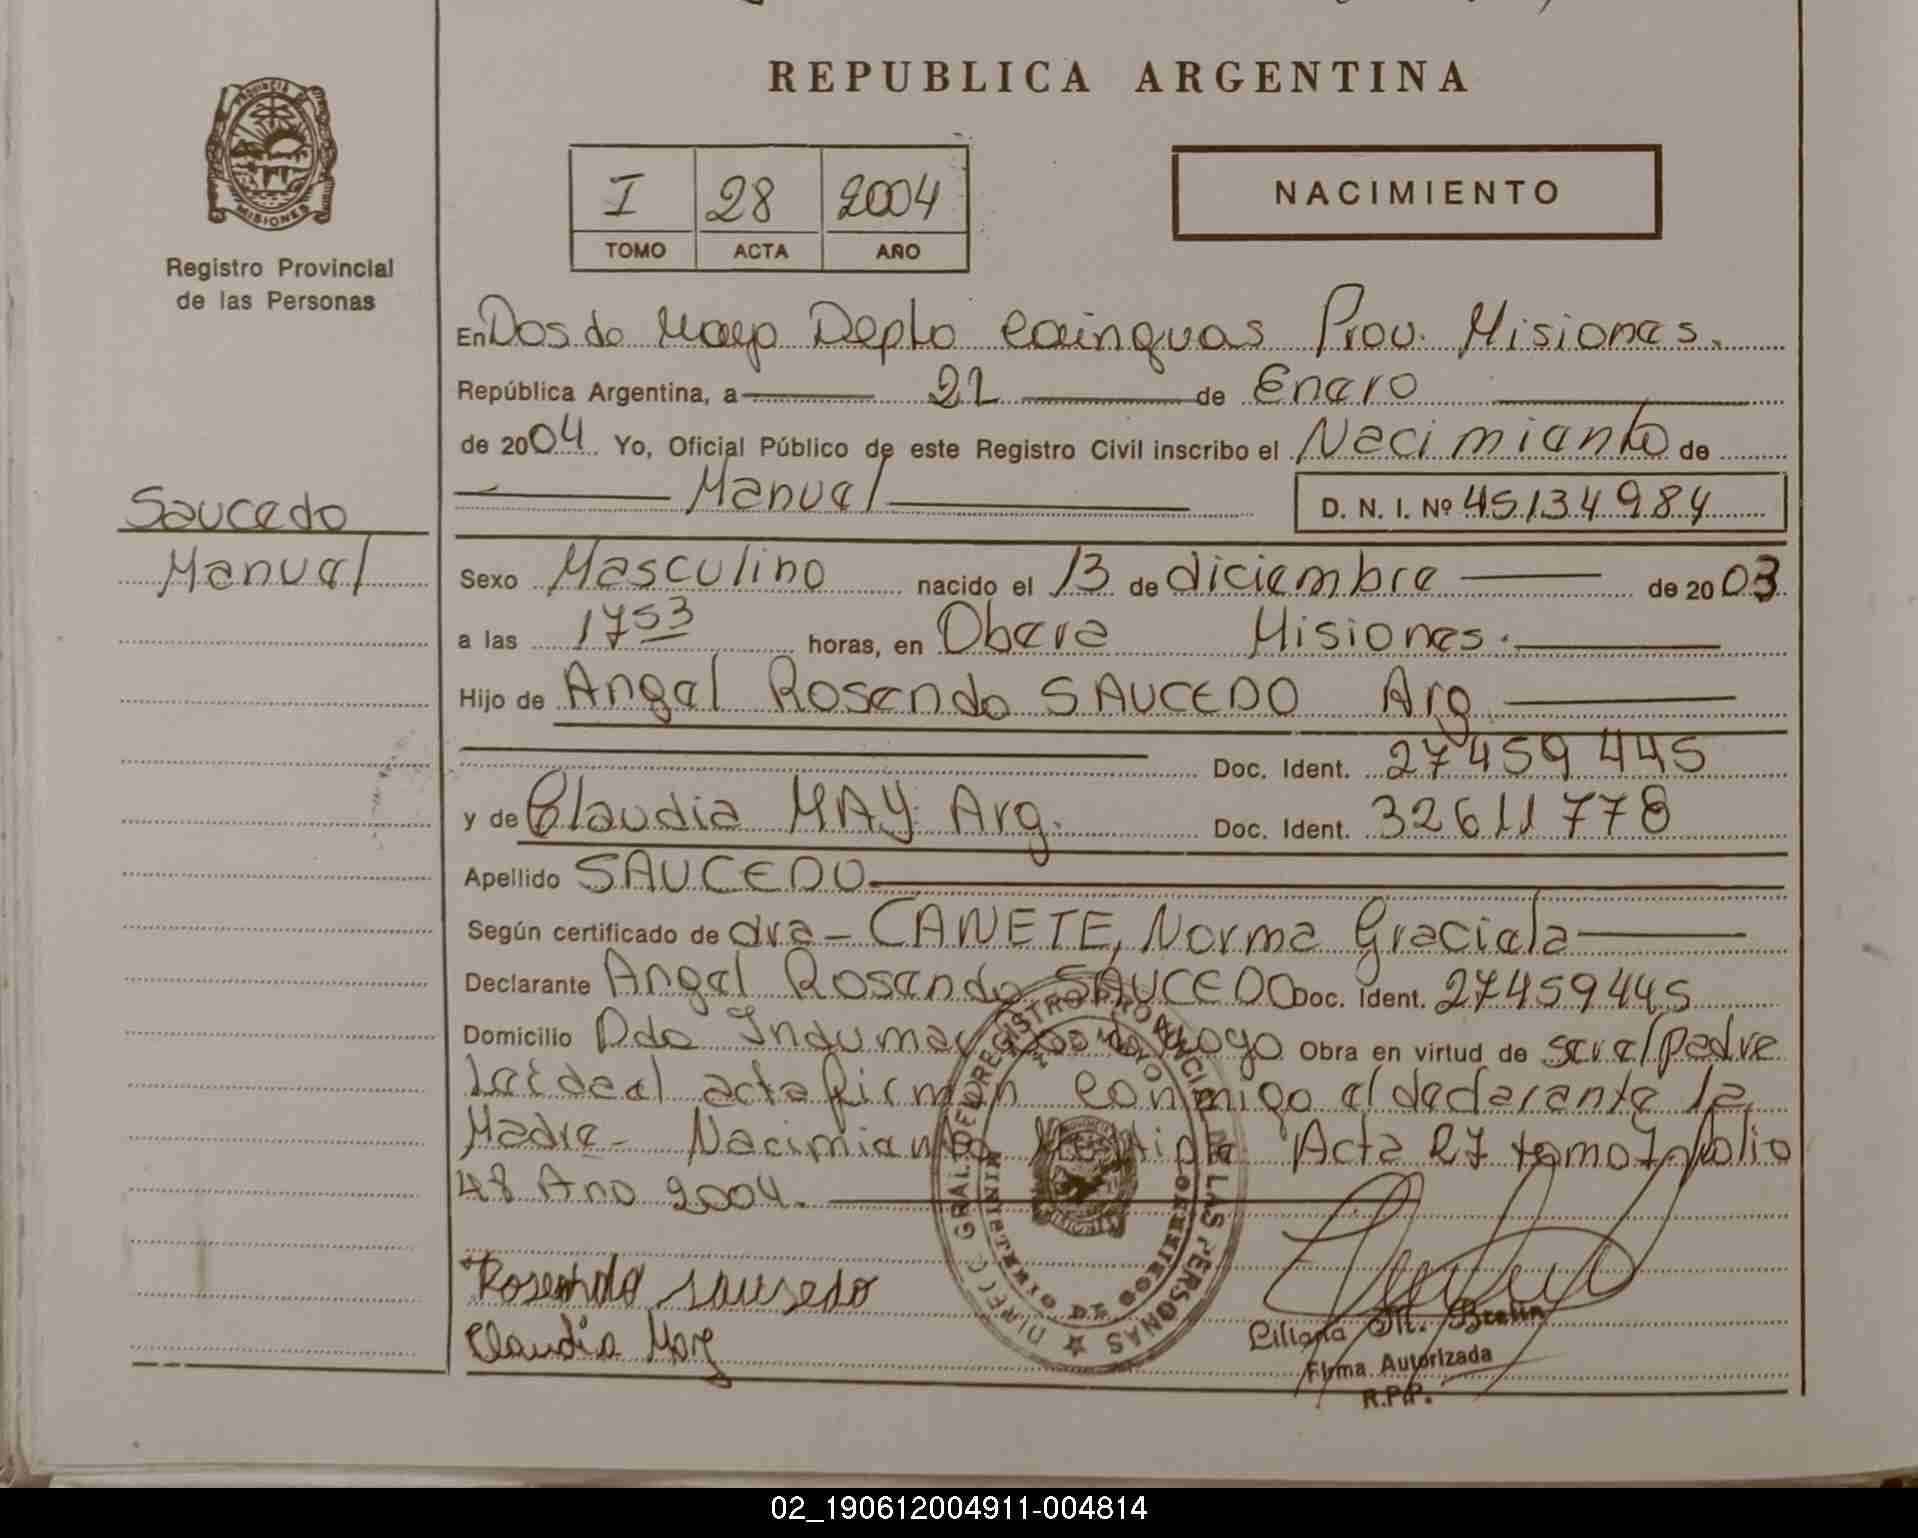 REPUBLICA ARGENTINA
PROVINCIA DE
MISIONES
Registro Provincial
de las Personas
I 28 2004
TOMO ACTA AÑO
NACIMIENTO
En Dos de Mayo Depto Cainguas Prov. Misiones.
República Argentina, a 22 de Enero
de 2004 Yo, Oficial Público de este Registro Civil inscribo el Nacimiento de
Manuel D. N. I. Nº 45134984
Saucedo
Manuel
Sexo Masculino nacido el 13 de diciembre de 2003
a las 1753 horas, en Obera Misiones.
Hijo de Angel Rosendo SAUCEDO Arg.
Doc. Ident. 27459445
y de Claudia MAY Arg. Doc. Ident. 32611778
Apellido SAUCEDO
Según certificado de dra - CANETE, Norma Graciela
Declarante Angel Rosendo SAUCEDO Doc. Ident. 27459445
Domicilio Dos de Mayo Obra en virtud de ser el padre
Leida el acta firman conmigo el declarante la
Madre - Nacimiento Multiple Acta 27 tomo I folio
48 Ano 2004.
DIRECC. GRAL. DEL REGISTRO PROVINCIAL DE LAS PERSONAS
MINISTERIO DE GOBIERNO
Rosendo sausedo
Claudia May
Liliana M. Brelin
Firma Autorizada
R.P.P.
02_190612004911-004814